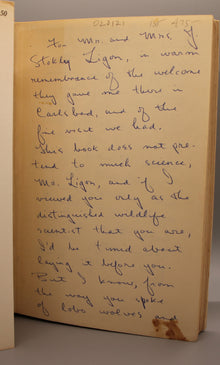 50
020121 1st 475-
For Mr. and Mrs. J
Stokley Ligon, in warm
remembrance of the welcome
they gave me there in
Carlsbad, and of the
fine visit we had.
This book does not pre-
tend to much science,
Mr. Ligon, and if I
viewed you only as the
distinguished wildlife
scientist that you are,
I'd be timid about
laying it before you.
But I know, from
the way you spoke
of lobo wolves and